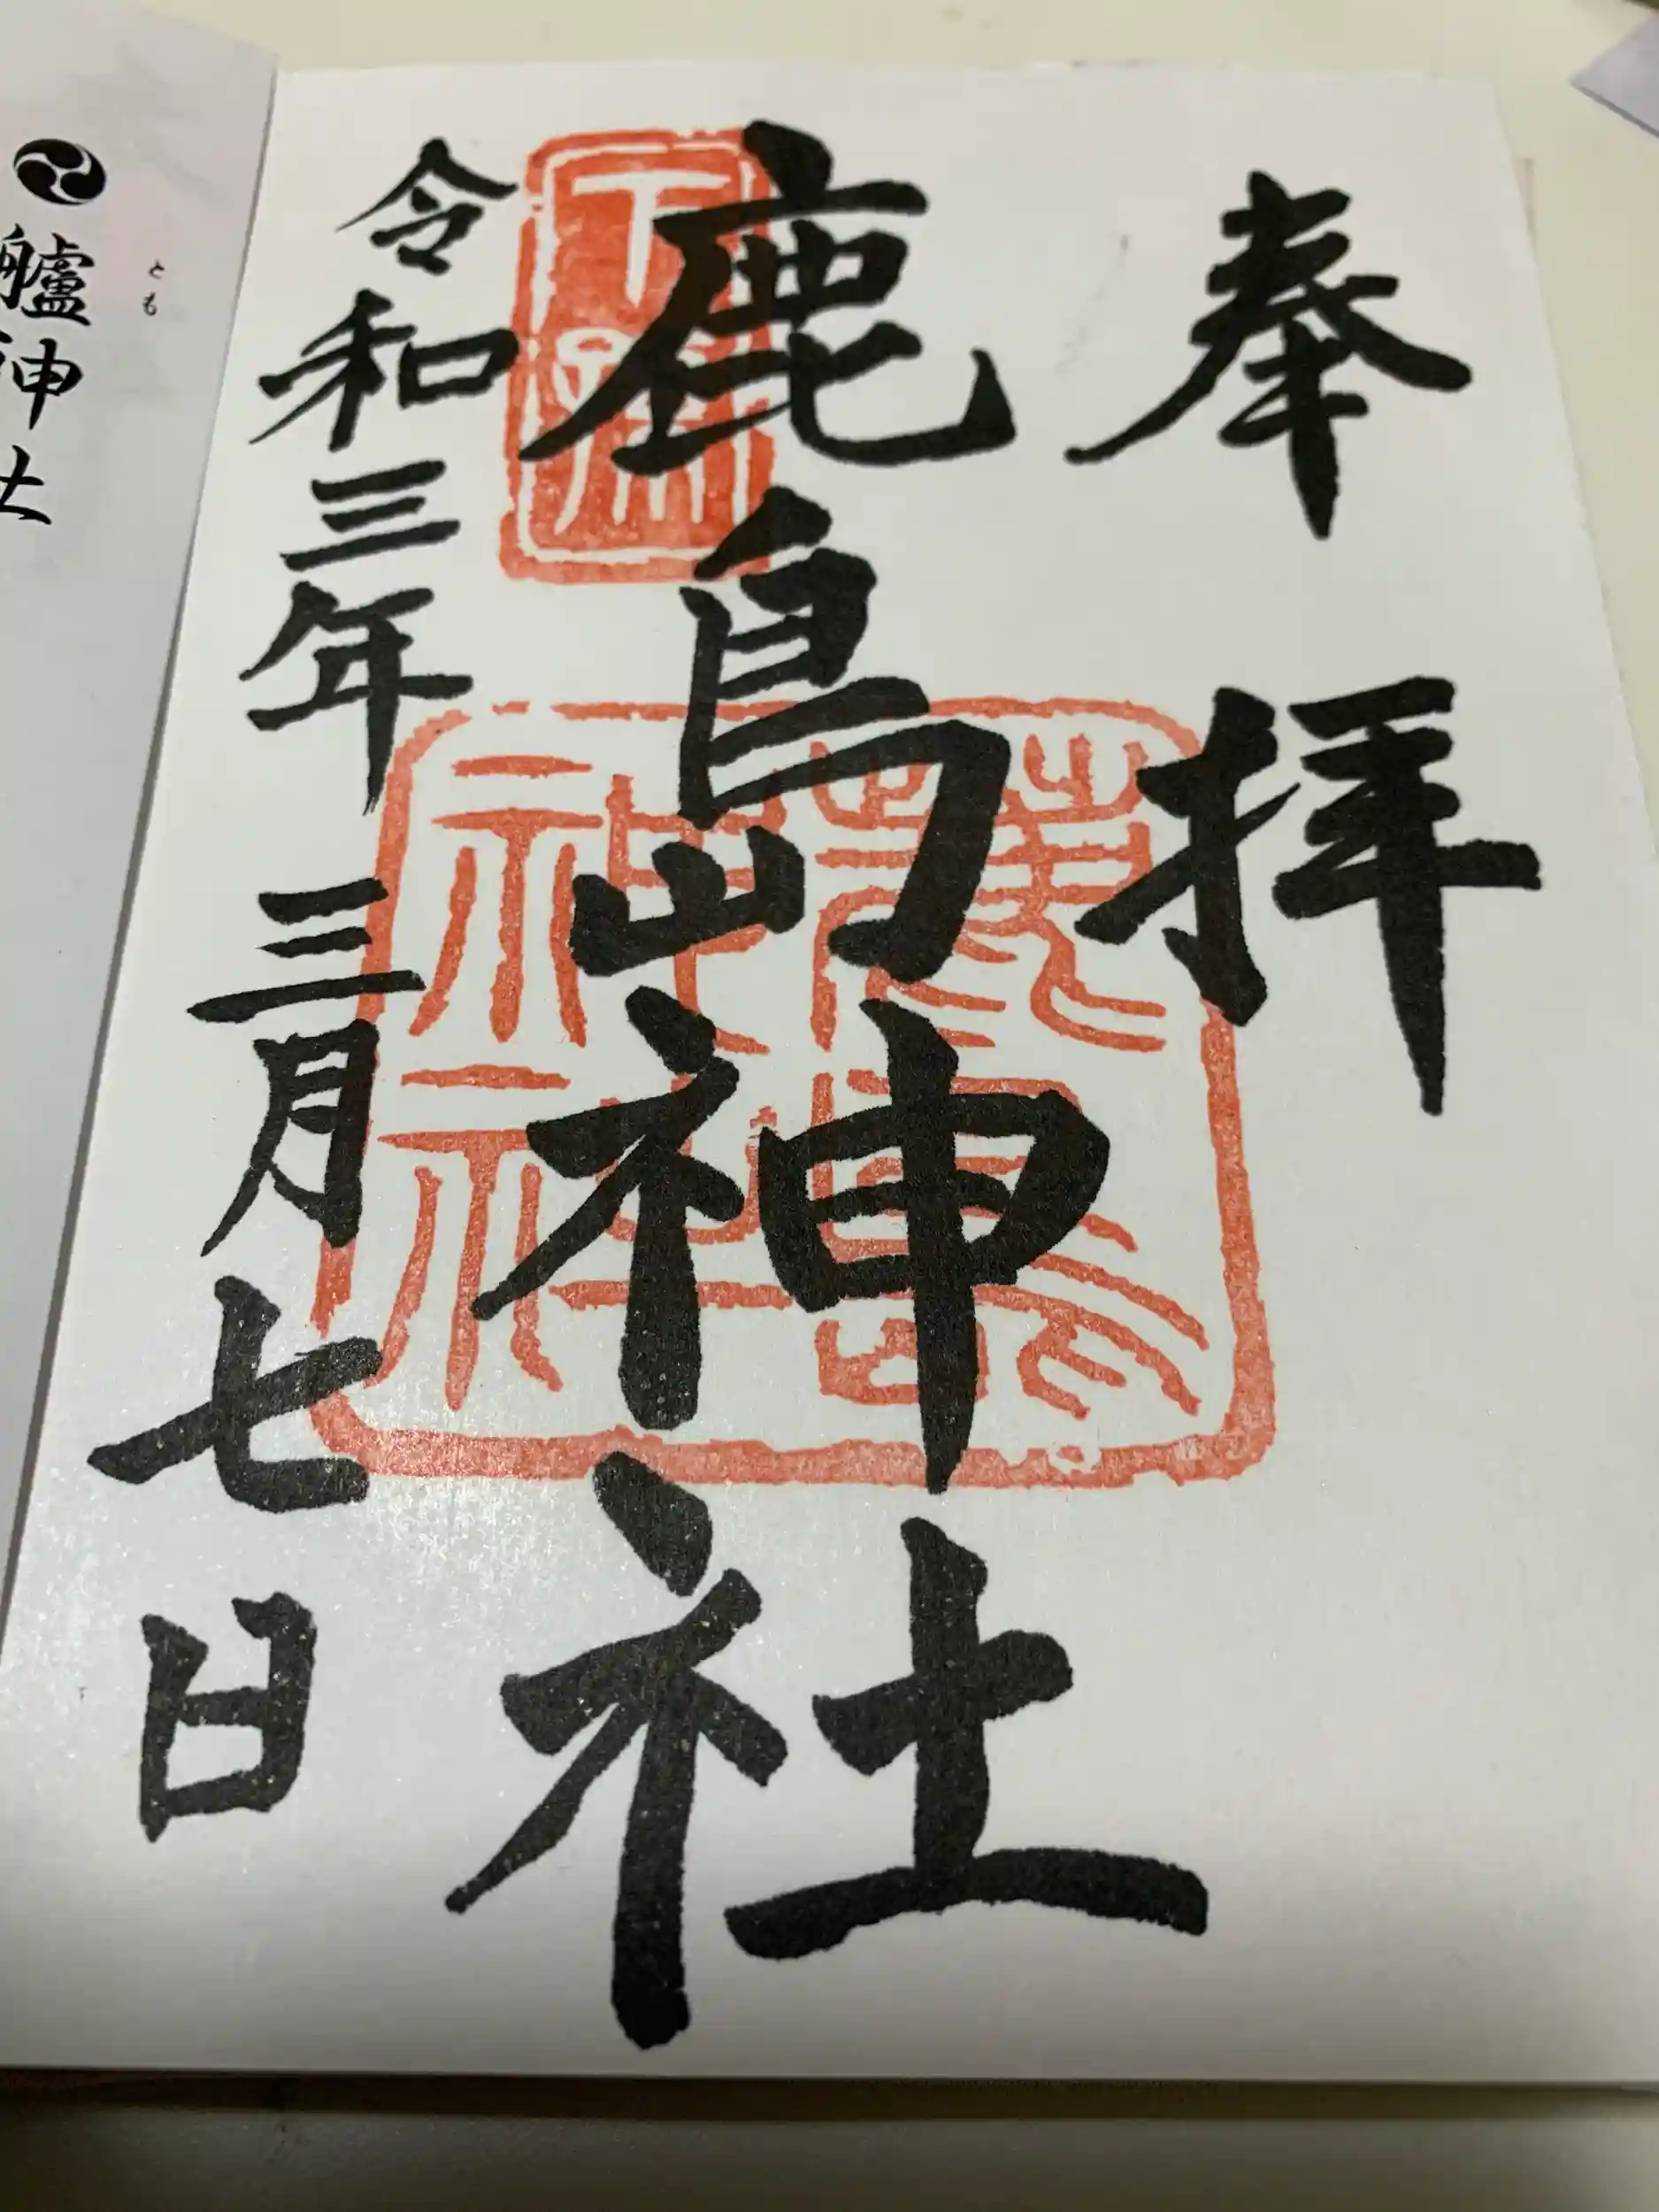 奉拝
鹿島神社
令和三年三月七日
下益
艫神社
とも